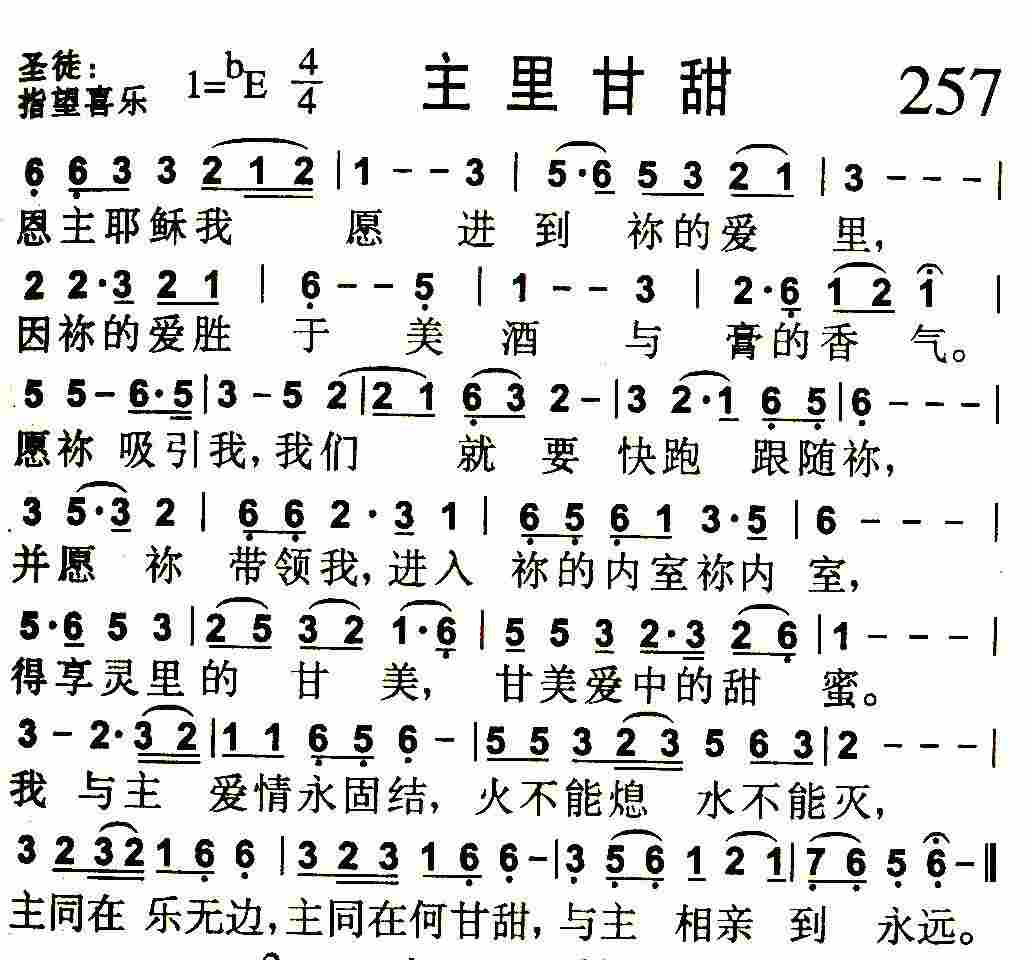 圣徒：
指望喜乐
1=bE 4/4
主里甘甜
257
6 6 3 3 2 1 2 | 1 - - 3 | 5·6 5 3 2 1 | 3 - - - |
恩主耶稣我 愿 进 到 祢的爱 里，
2 2·3 2 1 | 6 - - 5 | 1 - - 3 | 2·6 1 2 1 |
因祢的爱胜 于 美 酒 与 膏的香 气。
5 5 - 6·5 | 3 - 5 2 | 2 1 6 3 2 - | 3 2·1 6 5 | 6 - - - |
愿祢 吸引我，我们 就 要 快跑 跟随祢，
3 5·3 2 | 6 6 2·3 1 | 6 5 6 1 3·5 | 6 - - - |
并愿 祢 带领我，进入 祢的内室祢内 室，
5·6 5 3 | 2 5 3 2 1·6 | 5 5 3 2·3 2 6 | 1 - - - |
得享灵里的 甘 美， 甘美爱中的甜 蜜。
3 - 2·3 2 | 1 1 6 5 6 - | 5 5 3 2 3 5 6 3 | 2 - - - |
我 与主 爱情永固结，火不能熄 水不能灭，
3 2 3 2 1 6 6 | 3 2 3 1 6 6 - | 3 5 6 1 2 1 | 7 6 5 6 - ‖
主同在 乐无边，主同在何甘甜，与主 相亲 到 永远。